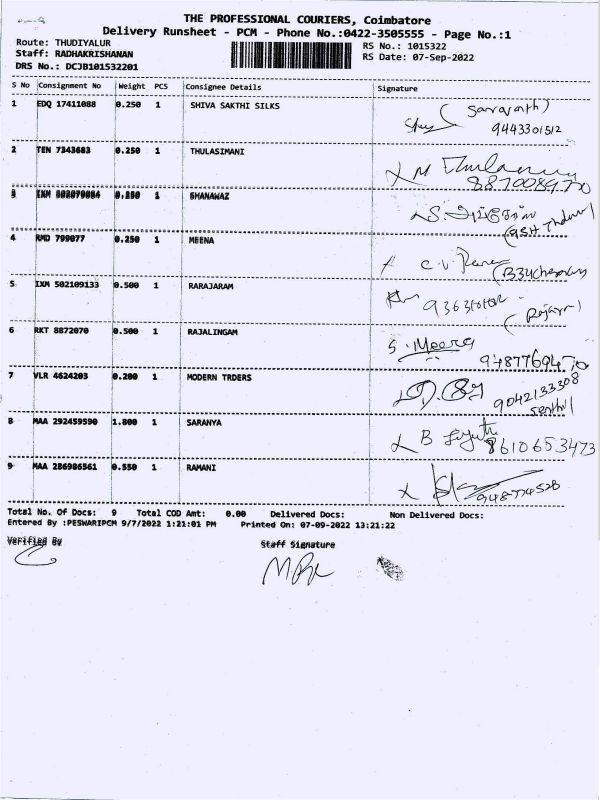 THE PROFESSIONAL COURIERS, Coimbatore
Delivery Runsheet - PCM - Phone No.:0422-3505555 - Page No.:1
Route: THUDIYALUR
RS No.: 1015322
Staff: RADHAKRISHANAN
RS Date: 07-Sep-2022
DRS No.: DCJB101532201
S No Consignment No Weight PCS Consignee Details Signature
1 EDQ 17411088 0.250 1 SHIVA SAKTHI SILKS
9443301512
2 TEN 7343683 0.250 1 THULASIMANI
3 IXM 502079084 0.250 1 SHANAWAZ
4 RMD 799077 0.250 1 MEENA
5 IXM 502109133 0.500 1 RARAJARAM
6 RKT 8872070 0.500 1 RAJALINGAM
S. Meera
9487769470
7 VLR 4624203 0.200 1 MODERN TRDERS
9042133308
Senthil
8 MAA 292459590 1.800 1 SARANYA
8610653473
9 MAA 286986561 0.550 1 RAMANI
Total No. Of Docs: 9 Total COD Amt: 0.00 Delivered Docs: Non Delivered Docs:
Entered By :PESWARIPCM 9/7/2022 1:21:01 PM Printed On: 07-09-2022 13:21:22
Verified By
Staff Signature